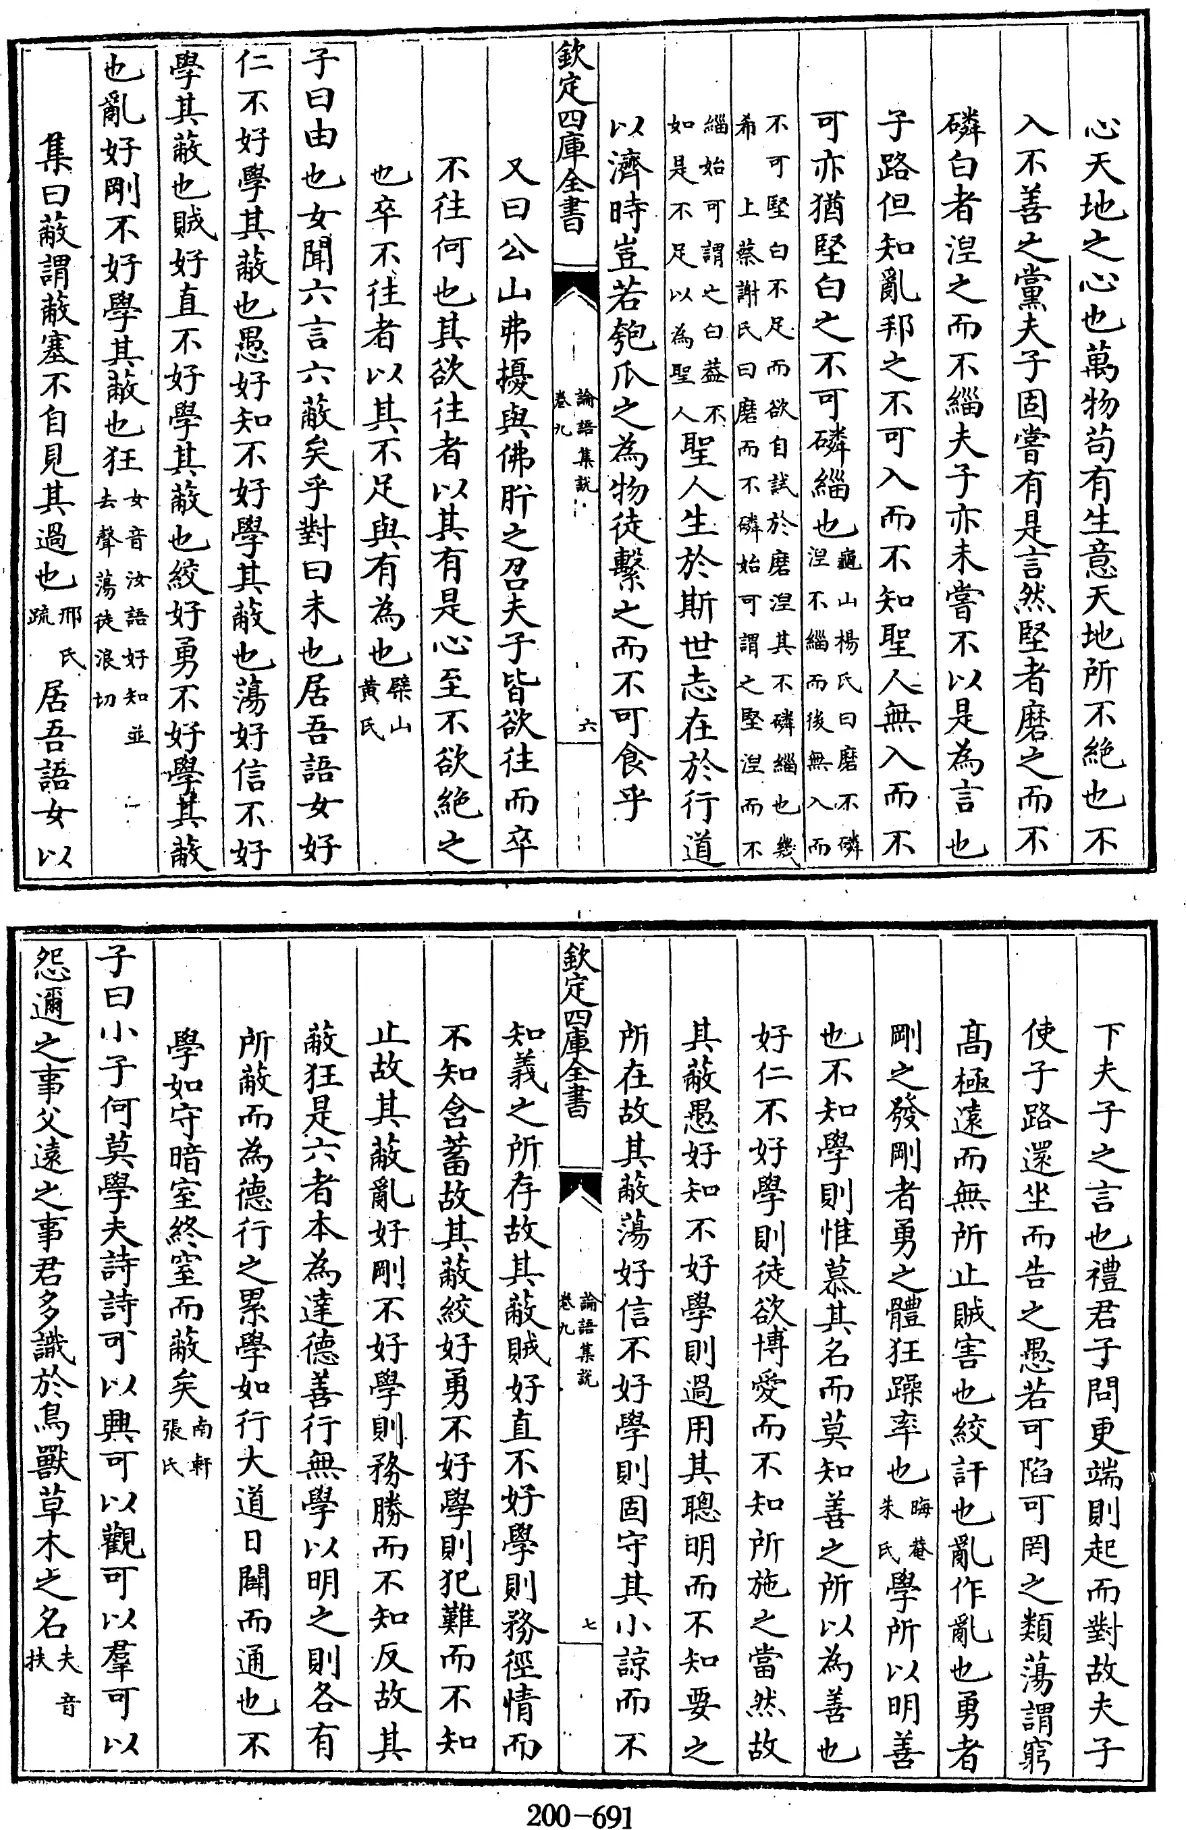 心天地之心也萬物苟有生意天地所不絶也不
入不善之黨夫子固嘗有是言然堅者磨之而不
磷白者涅之而不緇夫子亦未嘗不以是為言也
子路但知亂邦之不可入而不知聖人無入而不
可亦猶堅白之不可磷緇也龜山楊氏曰磨不磷涅不緇而後無入而
不可堅白不足而欲自試於磨涅其不磷緇也幾希 上蔡謝氏曰磨而不磷始可謂之堅涅而不
緇始可謂之白蓋不如是不足以為聖人聖人生於斯世志在於行道
以濟時豈若匏瓜之為物徒繫之而不可食乎
欽定四庫全書
論語集說
卷九
六
又曰公山弗擾與佛肸之召夫子皆欲往而卒
不往何也其欲往者以其有是心至不欲絶之
也卒不往者以其不足與有為也檗山黄氏
子曰由也女聞六言六蔽矣乎對曰未也居吾語女好
仁不好學其蔽也愚好知不好學其蔽也蕩好信不好
學其蔽也賊好直不好學其蔽也絞好勇不好學其蔽
也亂好剛不好學其蔽也狂女音汝語好知並去聲蕩徒浪切
集曰蔽謂蔽塞不自見其過也邢氏疏居吾語女以
下夫子之言也禮君子問更端則起而對故夫子
使子路還坐而告之愚若可陷可罔之類蕩謂窮
髙極遠而無所止賊害也絞訐也亂作亂也勇者
剛之發剛者勇之體狂躁率也晦菴朱氏學所以明善
也不知學則惟慕其名而莫知善之所以為善也
好仁不好學則徒欲博愛而不知所施之當然故
其蔽愚好知不好學則過用其聰明而不知要之
所在故其蔽蕩好信不好學則固守其小諒而不
欽定四庫全書
論語集說
卷九
七
知義之所存故其蔽賊好直不好學則務徑情而
不知含蓄故其蔽絞好勇不好學則犯難而不知
止故其蔽亂好剛不好學則務勝而不知反故其
蔽狂是六者本為達德善行無學以明之則各有
所蔽而為德行之累學如行大道日闢而通也不
學如守暗室終窒而蔽矣南軒張氏
子曰小子何莫學夫詩詩可以興可以觀可以羣可以
怨邇之事父遠之事君多識於鳥獸草木之名夫音扶
200-691